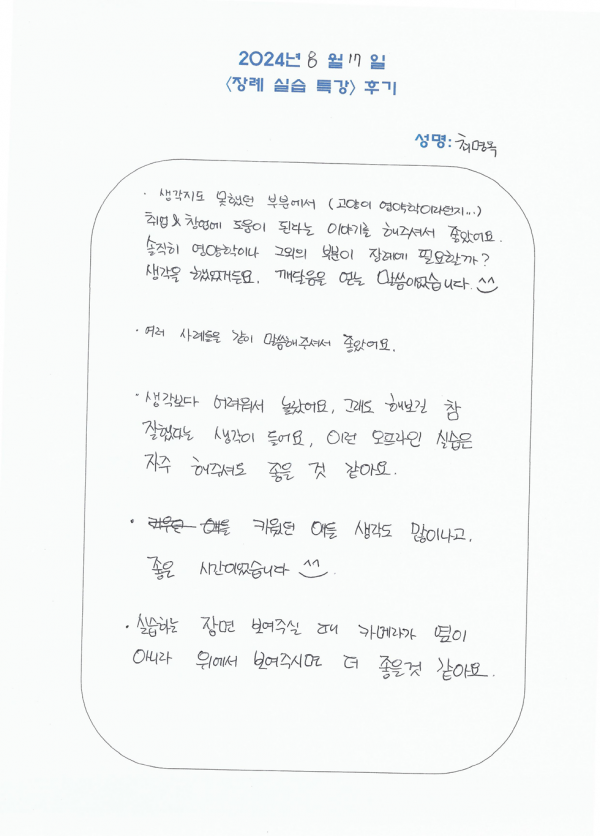 2024년 8 월 17 일
〈장례 실습 특강〉 후기
성명: 최명옥
· 생각지도 못했던 부분에서 (고양이 영양학이라던지...)
취업&창업에 도움이 된다는 이야기를 해주셔서 좋았어요.
솔직히 영양학이나 그외의 부분이 장례에 필요할까?
생각을 했었거든요. 깨달음을 얻는 말씀이었습니다. ^^
· 여러 사례들을 같이 말씀해주셔서 좋았어요.
· 생각보다 어려워서 놀랐어요, 그래도 해보길 참
잘했다는 생각이 들어요, 이런 오프라인 실습은
자주 해주셔도 좋을 것 같아요.
· 키우던 애들 키웠던 애들 생각도 많이나고,
좋은 시간이었습니다 ^^.
· 실습하는 장면 보여주실 때 카메라가 옆이
아니라 위에서 보여주시면 더 좋을것 같아요.